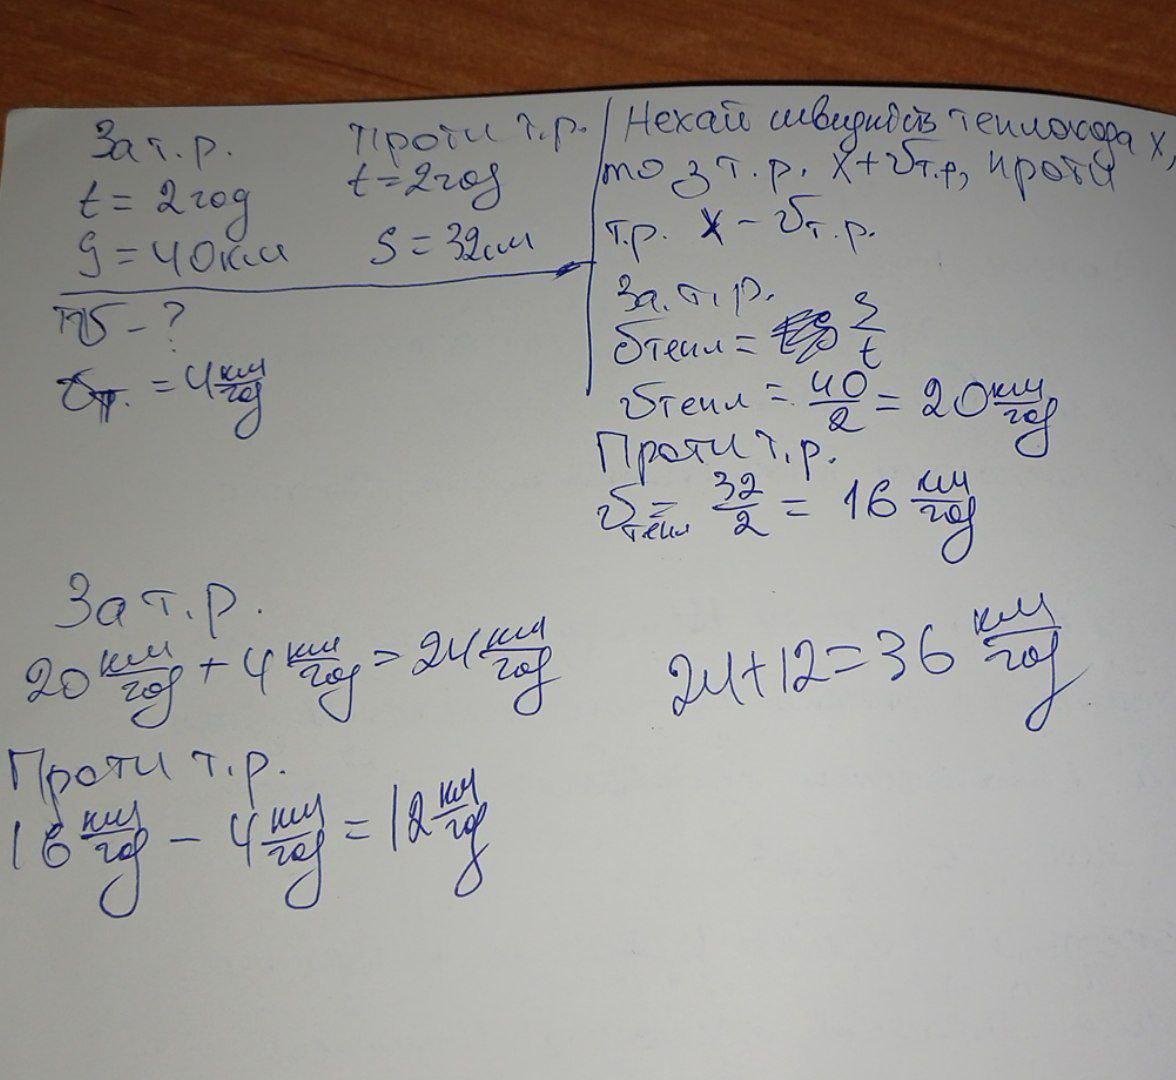 За т.р.
t = 2 год
S = 40 км
Проти т.р.
t = 2 год
S = 32 см
v - ?
= 4 км/год
Нехай швидкість теплохода x,
то з т.р. x + vт.р, проти
т.р. x - vт.р.
За т.р.
vтепл = S/t
vтепл = 40/2 = 20 км/год
Проти т.р.
vтепл = 32/2 = 16 км/год
За т.р.
20 км/год + 4 км/год = 24 км/год
Проти т.р.
16 км/год - 4 км/год = 12 км/год
24 + 12 = 36 км/год